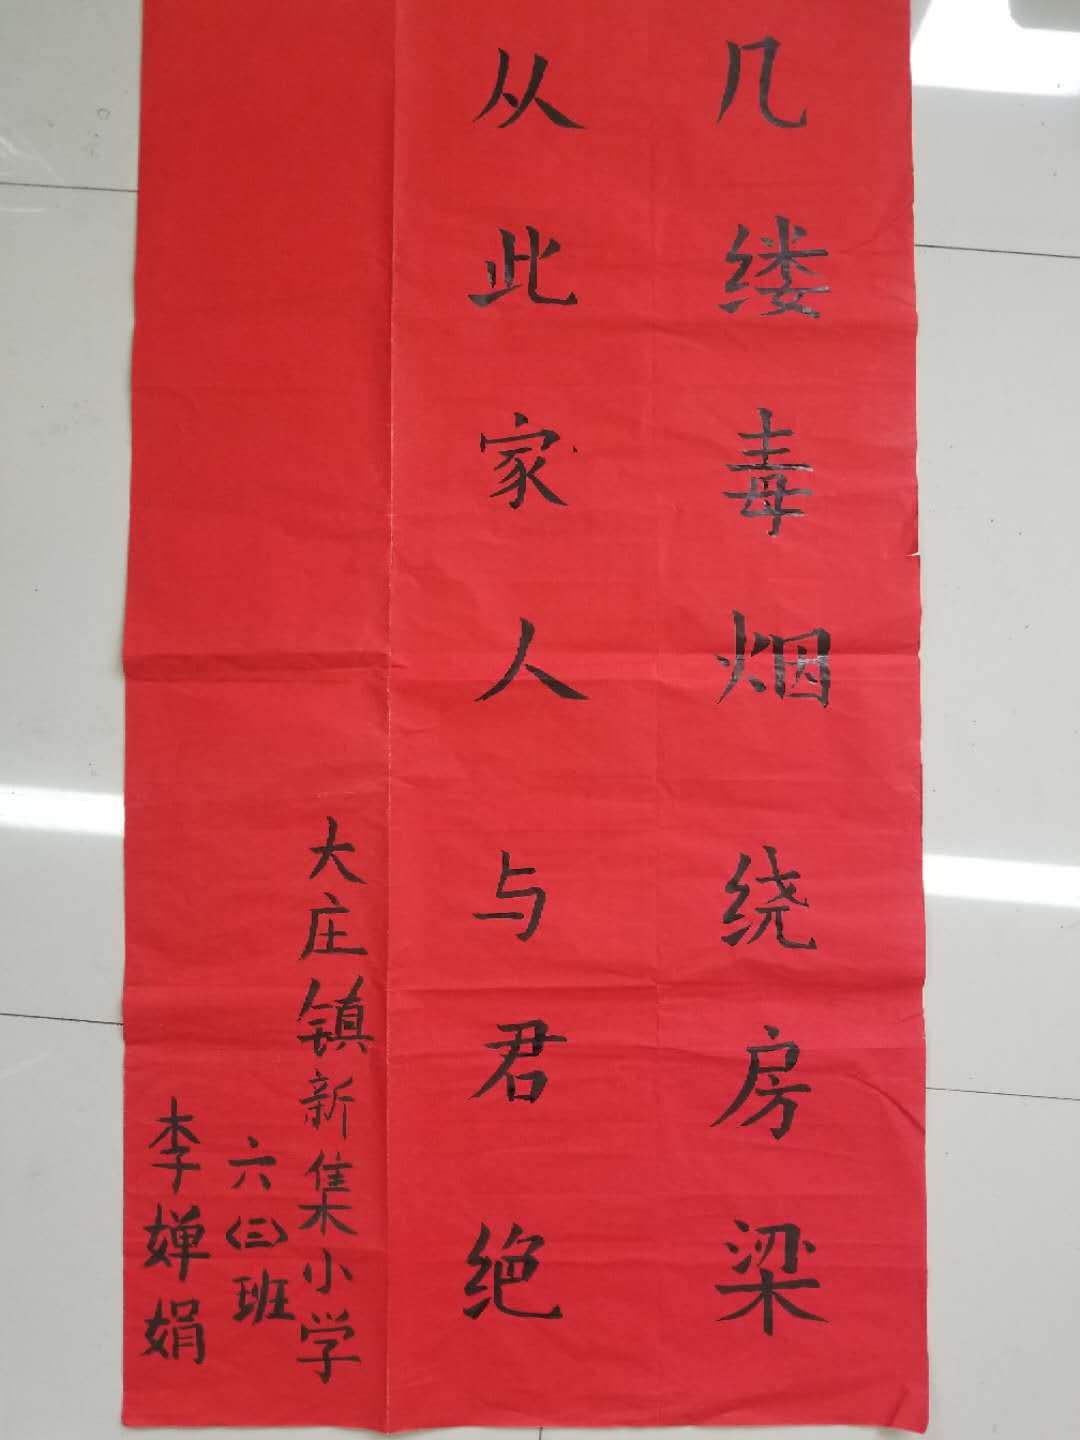 几缕毒烟绕房梁
从此家人与君绝
大庄镇新集小学
六(三)班
李婵娟